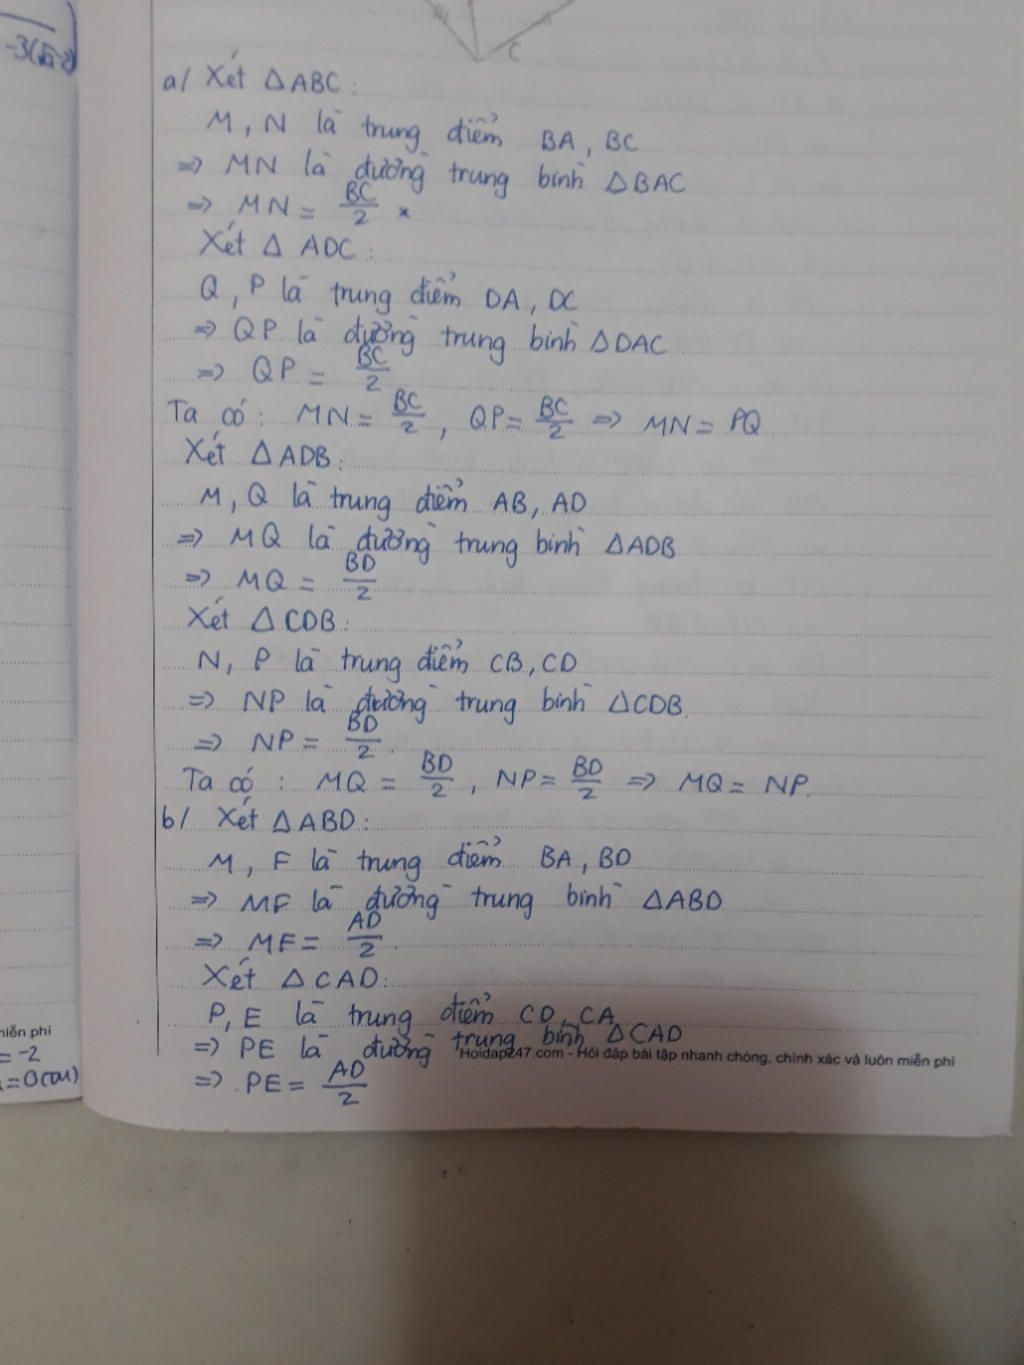 -3(√a-2)
C
a/ Xét ΔABC:
M, N là trung điểm BA, BC
=> MN là đường trung bình ΔBAC
=> MN = BC/2
Xét Δ ADC:
Q, P là trung điểm DA, DC
=> QP là đường trung bình ΔDAC
=> QP = BC/2
Ta có: MN = BC/2, QP = BC/2 => MN = PQ
Xét ΔADB:
M, Q là trung điểm AB, AD
=> MQ là đường trung bình ΔADB
=> MQ = BD/2
Xét ΔCDB:
N, P là trung điểm CB, CD
=> NP là đường trung bình ΔCDB.
=> NP = BD/2.
Ta có: MQ = BD/2, NP = BD/2 => MQ = NP.
b/ Xét ΔABD:
M, F là trung điểm BA, BD
=> MF là đường trung bình ΔABD
=> MF = AD/2.
Xét ΔCAD:
P, E là trung điểm CD, CA
=> PE là đường trung bình ΔCAD
Hoidap247.com - Hỏi đáp bài tập nhanh chóng, chính xác và luôn miễn phí
=> PE = AD/2
miễn phí
= -2
= 0 (TM)